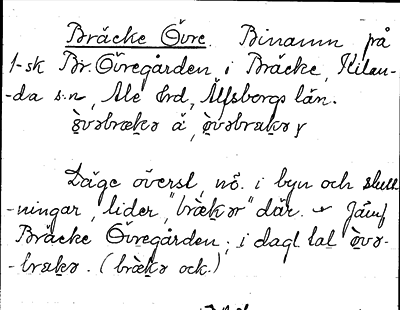 Bräcke Övre. Binamn på
1-sk Br. Övregården i Bräcke, Kilan-
-da s:n, Ale hrd, Älfsborgs län.
ö̀vəbrækə å, ö̀vəbrækə
Läge överst, nö. i byn och slutt-
-ningar, lider, "bræ̀kər" där. Jämf
Bräcke Övregården, i dagl. tal ö̀və-
-brækə. (bræ̀kə ock.)